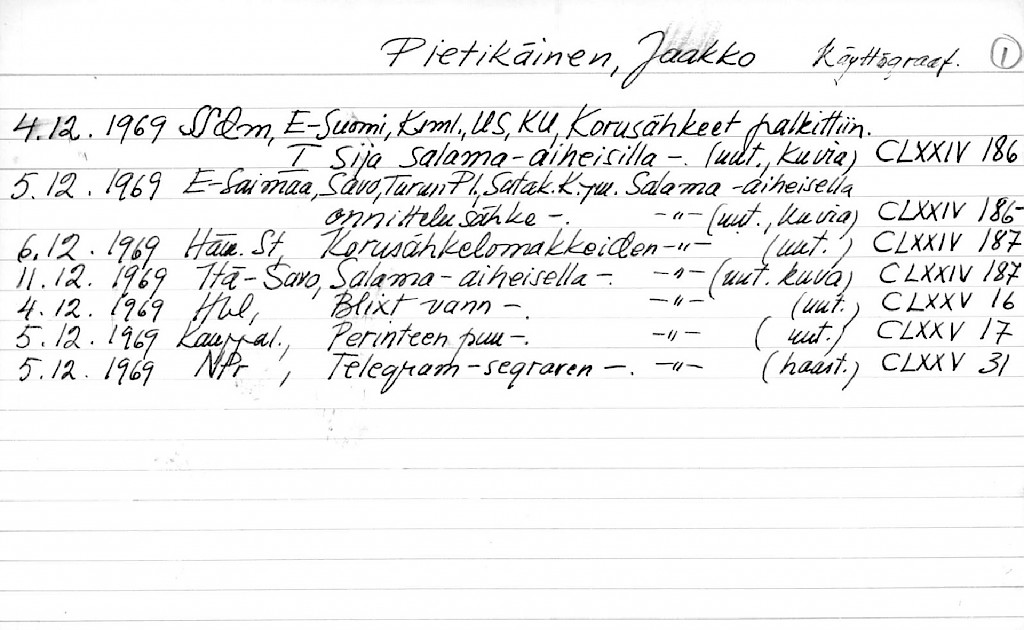 Pietikäinen, Jaakko Käyttögraaf. 1
4.12.1969 SSdm, E-Suomi, Ksml., US, KU, Korusähkeet palkittiin.
I Sija Salama-aiheisilla -. (uut., kuvia) CLXXIV 186
5.12.1969 E-Saimaa, Savo, Turun Pl, Satak.K. Salama-aiheisella
onnittelusähke -. -"- (uut., kuvia) CLXXIV 186-
6.12.1969 Häm. St, Korusähkelomakkeiden -"- (uut.) CLXXIV 187
11.12.1969 Itä-Savo, Salama-aiheisella -. -"- (uut. kuva) CLXXIV 187
4.12.1969 Hbl, Blixt vann -. -"- (uut.) CLXXV 16
5.12.1969 Kauppal., Perinteen puu -. -"- (uut.) CLXXV 17
5.12.1969 NPr, Telegram-segraren -. -"- (haast.) CLXXV 31